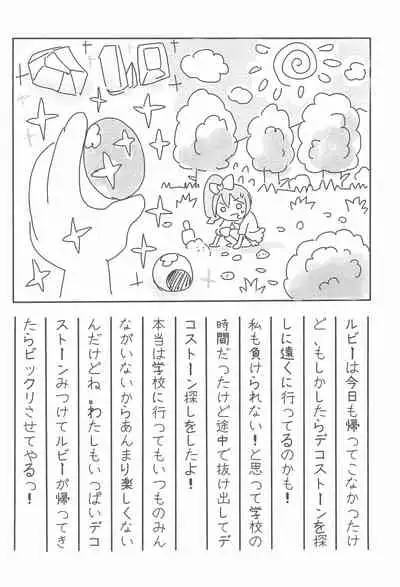 ルビーは今日も帰ってこなかったけ
ど、もしかしたらデコストーンを探
しに遠くに行ってるのかも!
私も負けられない!と思って学校の
時間だったけど途中で抜け出してデ
コストーン探しをしたよ!
本当は学校に行ってもいつものみん
ながいないからあんまり楽しくない
んだけどね。わたしもいっぱいデコ
ストーンみつけてルビーが帰ってき
たらビックリさせてやるっ!